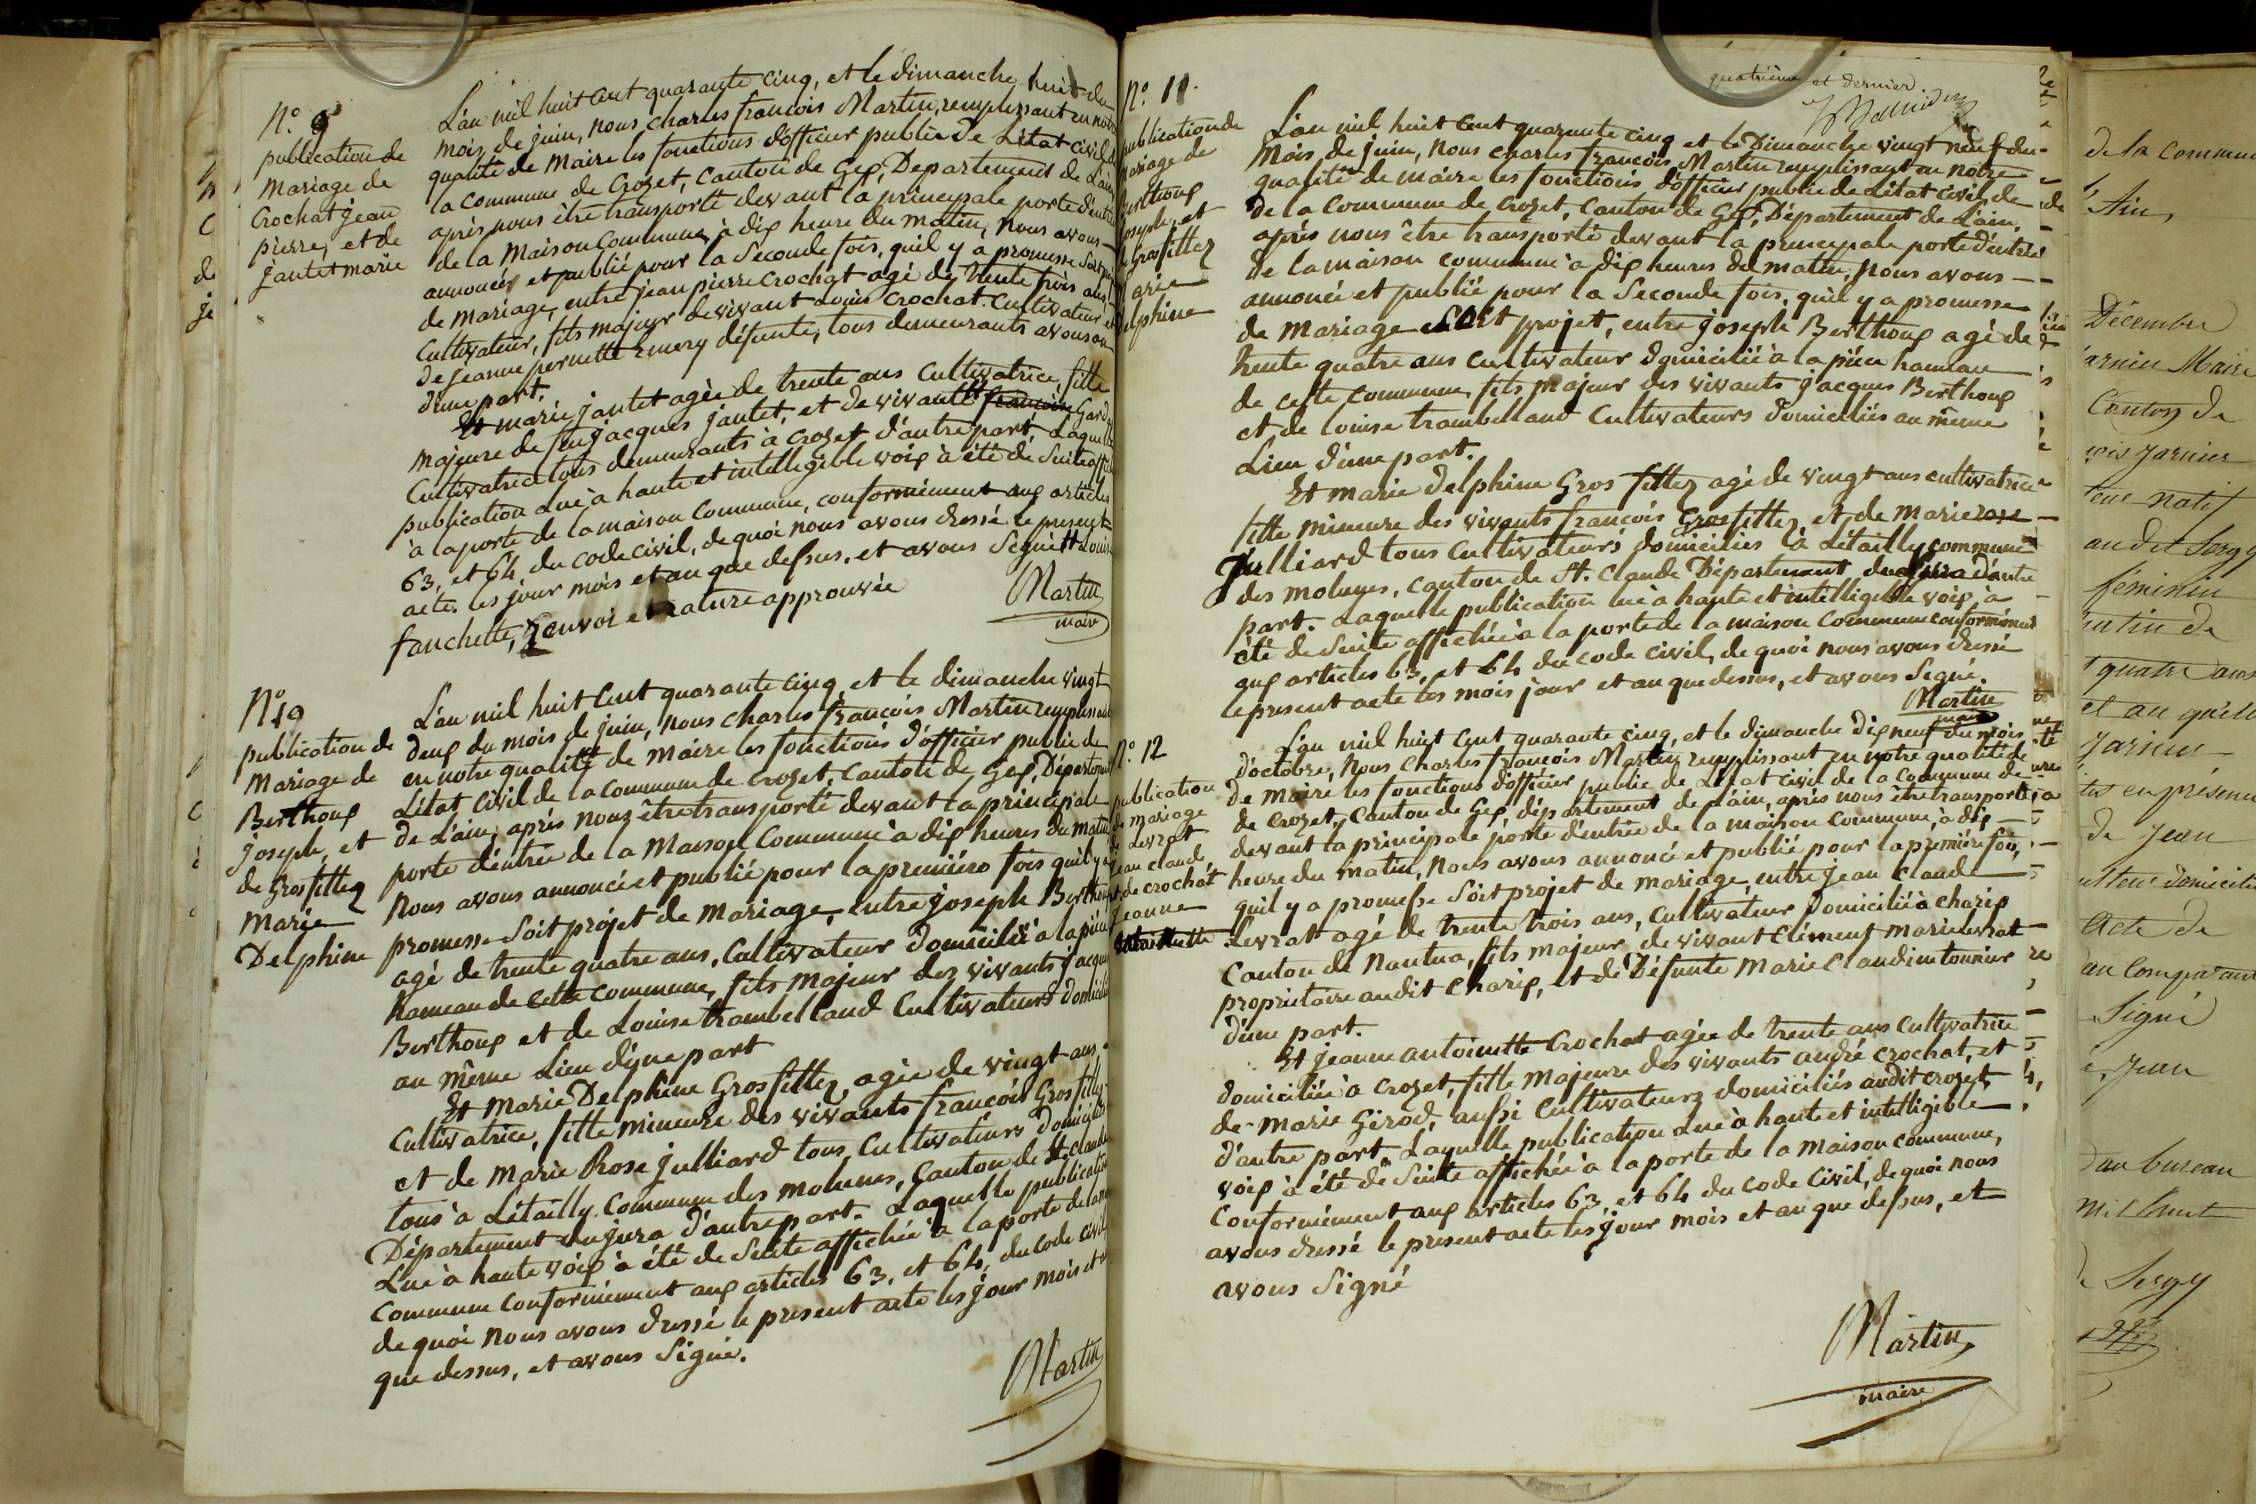 N.° 9
publication de
Mariage de
Crochat jean
pierre, et de
jantet marie
L'an mil huit cent quarante cinq, et le dimanche huit du
mois de juin, nous charles francois Martin, remplissant en notre
qualité de Maire les fonctions d'officier public de L'état civil de
la commune de Crozet, canton de Gex, Departement de L'ain
après nous être transporté devant la principale porte d'entrée
de la Maison commune, à dix heure du matin, nous avons —
annoncés et publié pour la seconde fois, qu'il y a promesse soit projet
de mariage, entre jean pierre Crochat agé de trente trois ans,
Cultivateur, fils majeur de vivant Louis Crochat Cultivateur et
de jeanne pernette Emery défunte, tous demeurants avouson
d'une part.
Et marie jantet agée de trente ans Cultivatrice, fille
majeure de feu jacques jantet, et de vivante francoise Gard
Cultivatrice tous demeurants à Crozet d'autre part, Laquelle
publication lue à haute et intelligible voix à été de suite affichée
à la porte de la maison commune, conformément aux articles
63, et 64 du code civil, de quoi nous avons dressé le present
acte. les jour mois et an que dessus. et avons signé. Louise
fanchette, renvoi et rature approuvée
Martin
maire
N.° 10
publication de
Mariage de
Berthoux
joseph, et
de Grosfillez
Marie
Delphine
L'an mil huit cent quarante cinq, et le dimanche vingt
deux du mois de juin, nous charles francois Martin remplissant
en notre qualité de maire les fonctions d'officier public de
L'état civil de la commune de Crozet, canton de Gex, Département
de L'ain, après nous être transporté devant la principale
porte d'entrée de la Maison Commune à dix heures du matin
Nous avons annoncé et publié pour la première fois qu'il y a
promesse soit projet de mariage, entre joseph Berthoux
agé de trente quatre ans, Cultivateur domicilié à la pièu
hameau de cette commune, fils majeur des vivants jacques
Berthoux et de Louise trambelland Cultivateurs domiciliés
au même Lieu d'une part
Et Marie Delphine Grosfillez, agée de vingt ans
Cultivatrice, fille mineure des vivants francois Grosfillez
et de Marie Rose julliard tous Cultivateurs domiciliés
tous à Létailly commune des molunes, Canton de St. Claude
Département du jura d'autre part. Laquelle publication
Lue à haute voix à été de suite affichée à la porte de la maison
Commune conformément aux articles 63, et 64, du code civil
de quoi nous avons dressé le present acte les jour mois et an
que dessus, et avons signé.
Martin
quatrième et dernier
N.° 11.
publication de
mariage de
Berthoux
joseph, et
de Grosfillez
Marie
Delphine
L'an mil huit cent quarante cinq et le Dimanche vingt neuf du
Mois de juin, nous charles francois Martin remplissant en notre
qualité de maire les fonctions d'officier public de L'état civil de
de la commune de crozet, canton de Gex, Département de L'ain,
après nous être transporté devant la principale porte d'entrée
de la maison commune à dix heures du matin, nous avons —
annoncé et publié pour la seconde fois, qu'il y a promesse
de Mariage soit projet, entre joseph Berthoux agé de
trente quatre ans cultivateur domicilié à la pièu hameau
de cette commune, fils majeur des vivants jacques Berthoux
et de louise trambelland Cultivateurs domiciliés au même
Lieu d'une part.
Et marie delphine Gros fillez agé de vingt ans cultivatrice
fille mineure des vivants francois Grosfillez, et de marie rose —
Julliard tous cultivateurs domicilies à Létailly commune
des molunes, canton de St. Claude Département du jura d'autre
part. Laquelle publication lue à haute et intelligible voix, à
été de suite affichée à la porte de la maison Commune conformément
aux articles 63, et 64 du code civil, de quoi nous avons dressé
le present acte les mois jour et an que dessus, et avons signé.
Martin
maire
N.° 12
publication
de mariage
de Levrat
jean claude,
et de crochat
jeanne
antoinette
L'an mil huit cent quarante cinq, et le dimanche dix neuf du mois
d'octobre, Nous Charles francois Martin remplissant en notre qualité de
de maire les fonctions d'officier public de L'état civil de la Commune de
de Crozet, canton de Gex, département de l'ain, après nous être transporté
devant la principale porte d'entrée de la maison Commune, à dix —
heure du matin, Nous avons annoncé et publié pour la première fois,
qu'il y a promesse soit projet de mariage, entre jean Claude
Levrat agé de trente trois ans, cultivateur Domicilié à charix
Canton de Nantua, fils majeur de vivant Clément marie levrat
proprietaire audit Charix, et de Défunte Marie Claudine tournier
d'une part.
Et jeanne antoinette Crochat agée de trente ans Cultivatrice
domiciliée à crozet, fille Majeure des vivants andré crochat, et
de Marie Girod, aussi Cultivateurs domiciliés audit crozet,
d'autre part. Laquelle publication Lue à haute et intelligible
voix à été de suite affichée à la porte de la maison commune,
Conformément aux articles 63, et 64 du code Civil, de quoi nous
avons dressé le present acte les jour mois et an que dessus, et
avons signé
Martin
maire
de la commune
Ain,
Décembre
Canton de
natif
audit Sergy
féminin
quatre ans
et an qu'elle
en présence
de Jean
domicilié
Acte de
Signé
Jean
au bureau
mil huit
Sergy